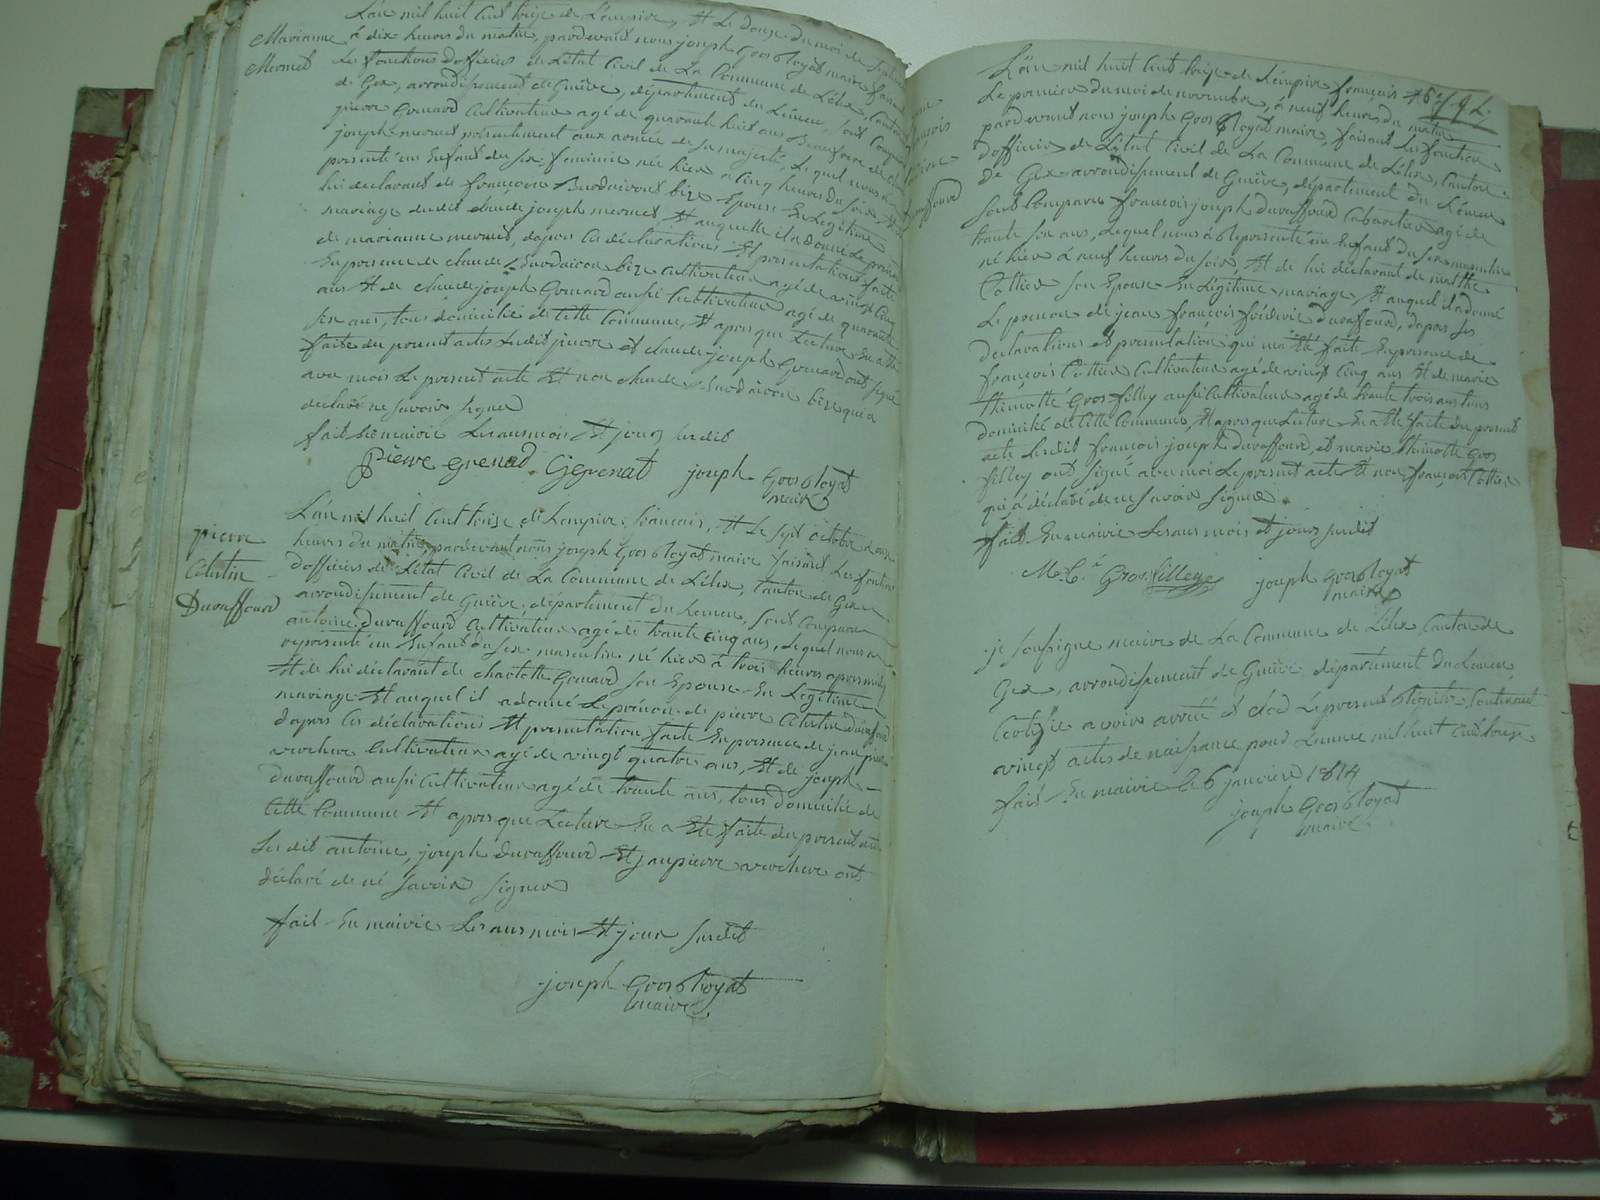 Marianne
Mermet
L'an mil huit cent treize de L'empire, Et Le douze du mois de
à dix heures du matin, pardevant nous joseph Grosbloyat maire faisant
Les fonctions d'officier de L'état Civil de La Commune de Lélex, Canton
de Gex, arrondissement de Genève, département du Léman, sont Comparu
pierre Grenard Cultivateur agé de quarante huit ans
joseph mermet présentement aux armée de sa majesté, Lequel nous a
présenté un Enfant du sexe féminin née hier à Cinq heures du soir
lui déclarant de françoise Burdairon bize Epouse En Légitime
mariage dudit claude joseph mermet Et auquelle il a donné Le prénom
de marianne mermet, dapres les déclarations Et présentations faite
En présence de claude Burdairon bize Cultivateur agé de vingt Cinq
ans Et de claude joseph Grenard aussi Cultivateur agé de quarante
six ans, tous domicilié de Cette Commune, Et apres que Lecture En a été
faite du présent actes Lesdit pierre et claude joseph Grenard ont signé
avec moi Le présent acte Et non claude Burdairon bize qui a
déclaré ne savoir signer
fait En mairie Les ans mois Et jours susdit
pierre grenad CJgrenat joseph Grosbloyat
maire
pierre
Celestin
Duraffourd
L'an mil huit Cent treize de L'empire français, Et Le sept octobre à onze
heures du matin, pardevant nous joseph Grosbloyat maire faisant Les fonctions
d'officier de L'état Civil de La Commune de Lélex, Canton de Gex
arrondissement de Genève, département du Leman, sont Comparu
antoine Duraffourd Cultivateur agé de trante Cinq ans, Lequel nous a
représenté un Enfant du sexe masculin né hier à trois heures apres midy
Et de lui déclarant de charlotte Grenard son Epouse En Légitime
mariage Et auquel il a donné Le prénom de pierre Celestin Duraffourd
dapres les déclarations Et présentation faite En présence de jean pierre
Cultivateur agé de vingt quatre ans, Et de joseph
Duraffourd aussi Cultivateur agé de trante ans, tous domicilié de
Cette Commune Et apres que Lecture En a Eté faite du présent acte
Les dit antoine, joseph Duraffourd Et jean pierre ont
déclaré de ne savoir signer
fait En mairie Les ans mois Et jour susdit
joseph Grosbloyat
maire
L'an mil huit Cent treize de L'empire français Et
Le premier du moi de novembre, à neuf heures du matin
pardevant nous joseph Grosbloyat maire, faisant Les fonction
d'officier de L'état Civil de La Commune de Lélex, Canton
de Gex arrondissement de Genève, département du Léman
sont Comparu françois joseph Duraffourd Cabaretier agé de
trante six ans, Lequel nous à Représenté un Enfant du sexe masculin
né hier à neuf heures du soir, Et de lui déclarant de marthe
Cottier son Epouse En Légitime mariage, Et auquel il a donné
Le prénom de jean françois fréderic Duraffourd, dapres les
déclarations et présentation qui m'a été faite En présence de
françois Cottier Cultivateur agé de vingt Cinq ans Et de marie
thimotté Grosfilley aussi Cultivateur agé de trante trois ans tous
domicilié de Cette Commune, Et apres que Lecture En a Eté faite du présent
acte Lesdit françois joseph Duraffourd, et marie thimotte Gros
filley ont signé avec moi Le présent acte Et non françois Cottier
qui à déclaré de ne savoir signer
fait En mairie Les ans mois Et jours susdit
M. T. Grosfilley joseph Grosbloyat
maire
je soussigne maire de La Commune de Lélex Canton de
Gex, arrondissement de Genève, département du Léman
Certifie avoir arrêté et clôd Le présent Régistre Contenant
vingt actes de naissance pend L'année mil huit Cent treize
fait En mairie le 6 janvier 1814
joseph Grosbloyat
maire